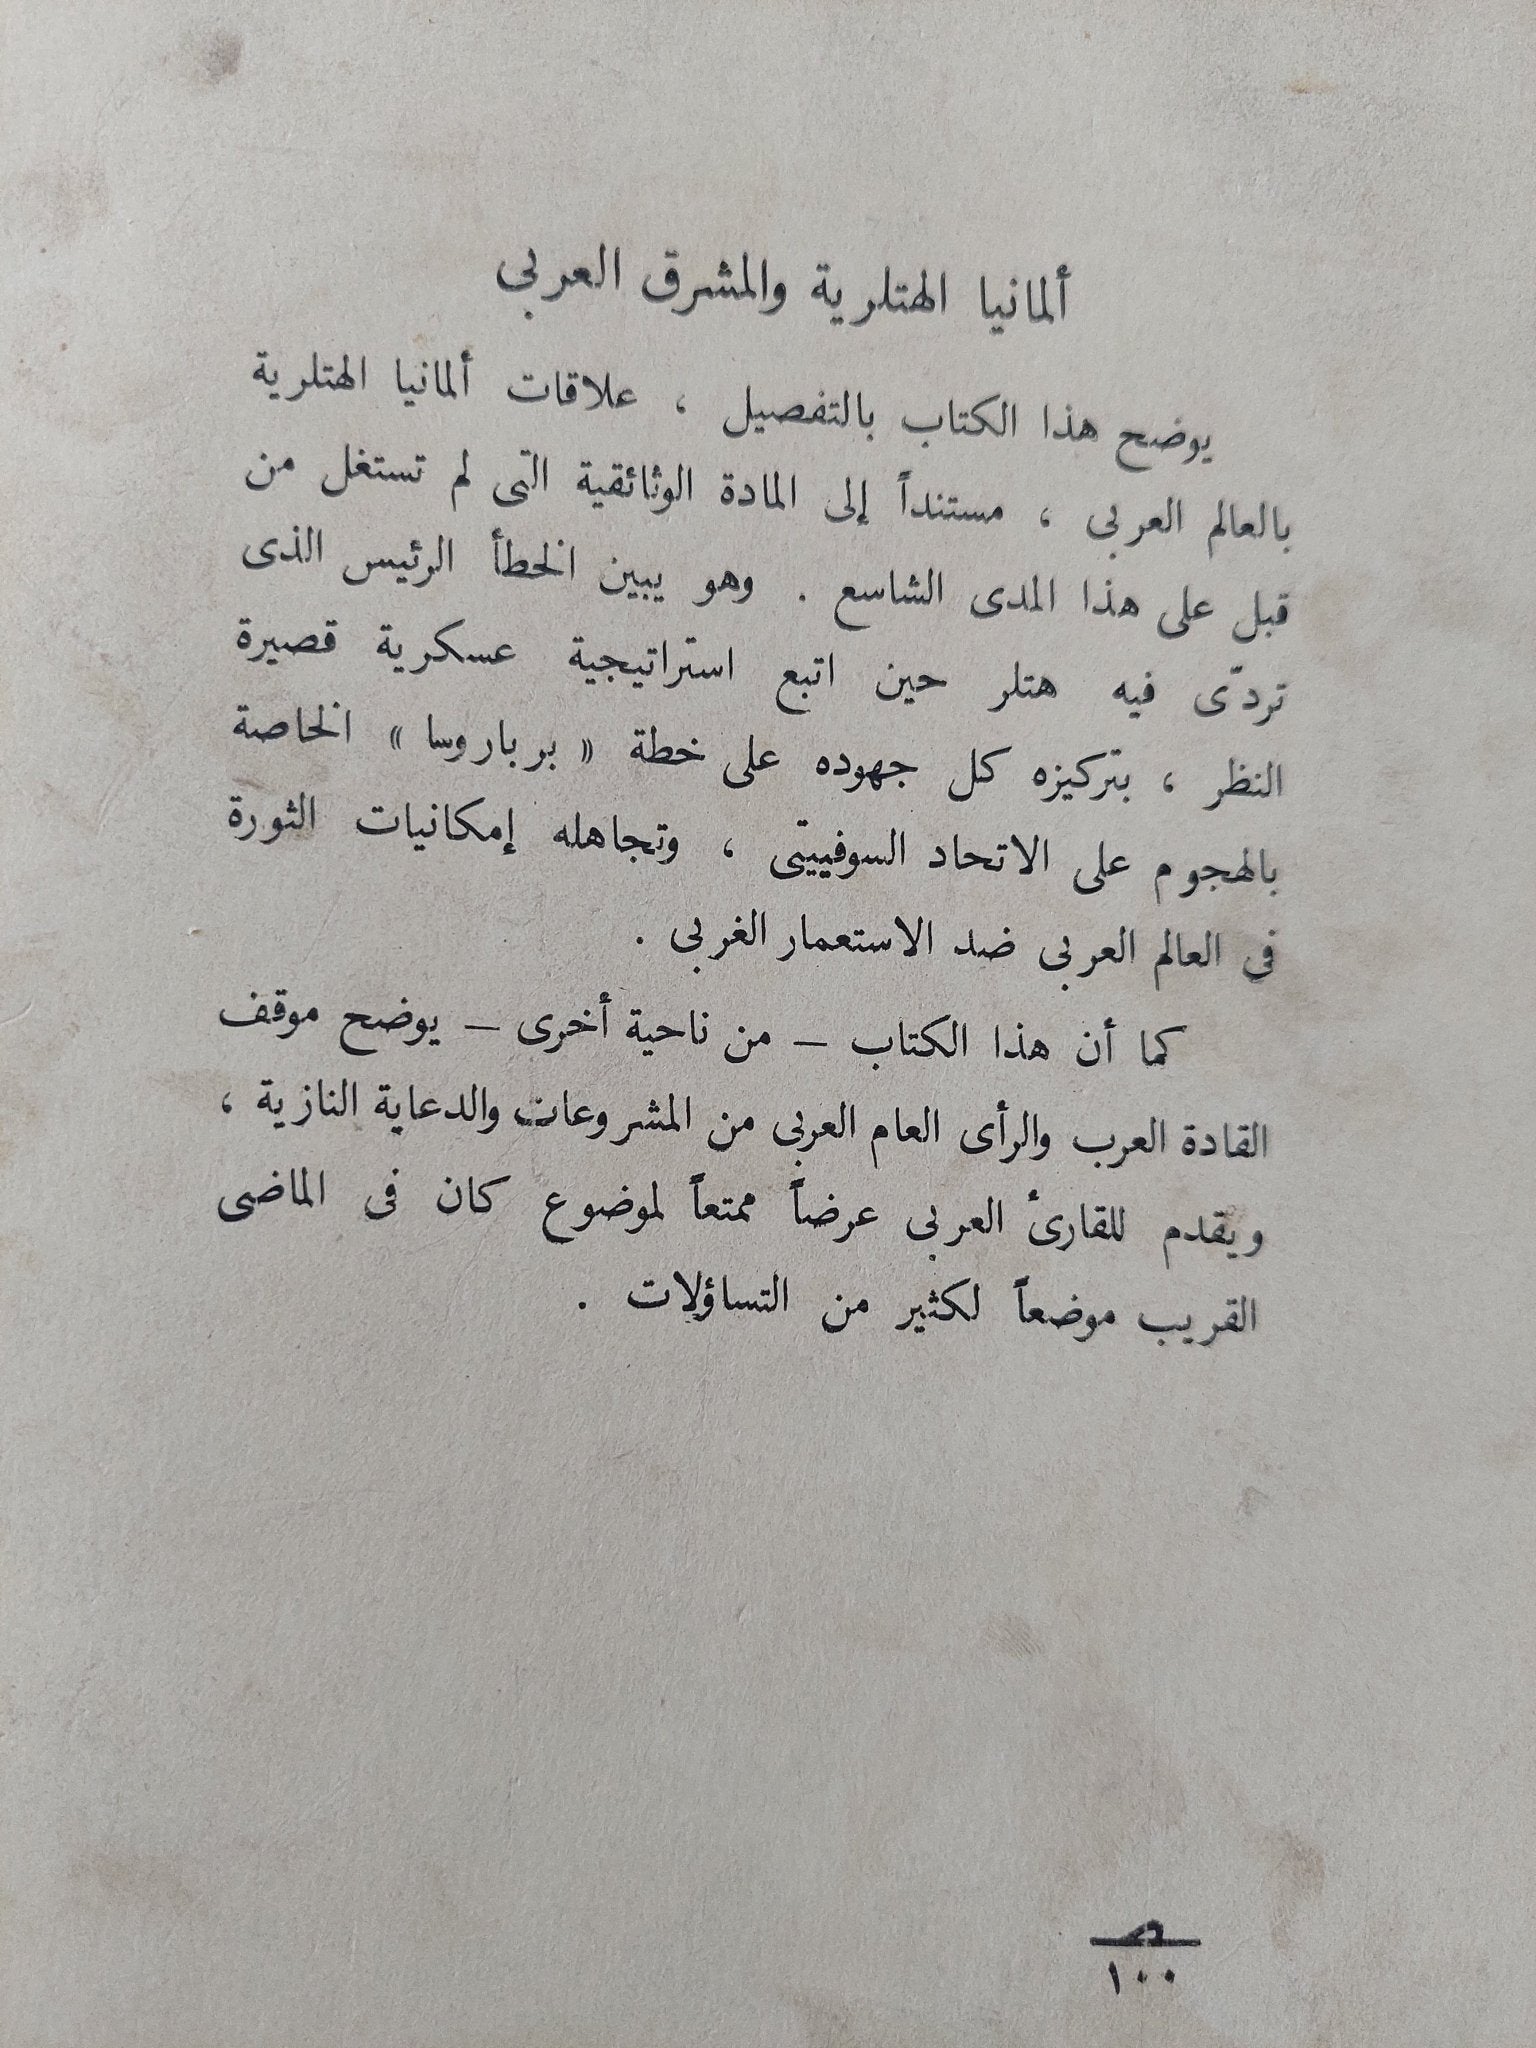 ألمانيا الهتلرية والمشرق العربى
يوضح هذا الكتاب بالتفصيل ، علاقات ألمانيا الهتلرية
بالعالم العربى ، مستنداً إلى المادة الوثائقية التى لم تستغل من
قبل على هذا المدى الشاسع . وهو يبين الخطأ الرئيس الذى
تردّى فيه هتلر حين اتبع استراتيجية عسكرية قصيرة
النظر ، بتركيزه كل جهوده على خطة « برباروسا » الخاصة
بالهجوم على الاتحاد السوفييتى ، وتجاهله إمكانيات الثورة
فى العالم العربى ضد الاستعمار الغربى .
كما أن هذا الكتاب – من ناحية أخرى – يوضح موقف
القادة العرب والرأى العام العربى من المشروعات والدعاية النازية ،
ويقدم للقارئ العربى عرضاً ممتعاً لموضوع كان فى الماضى
القريب موضعاً لكثير من التساؤلات .
١٠٠